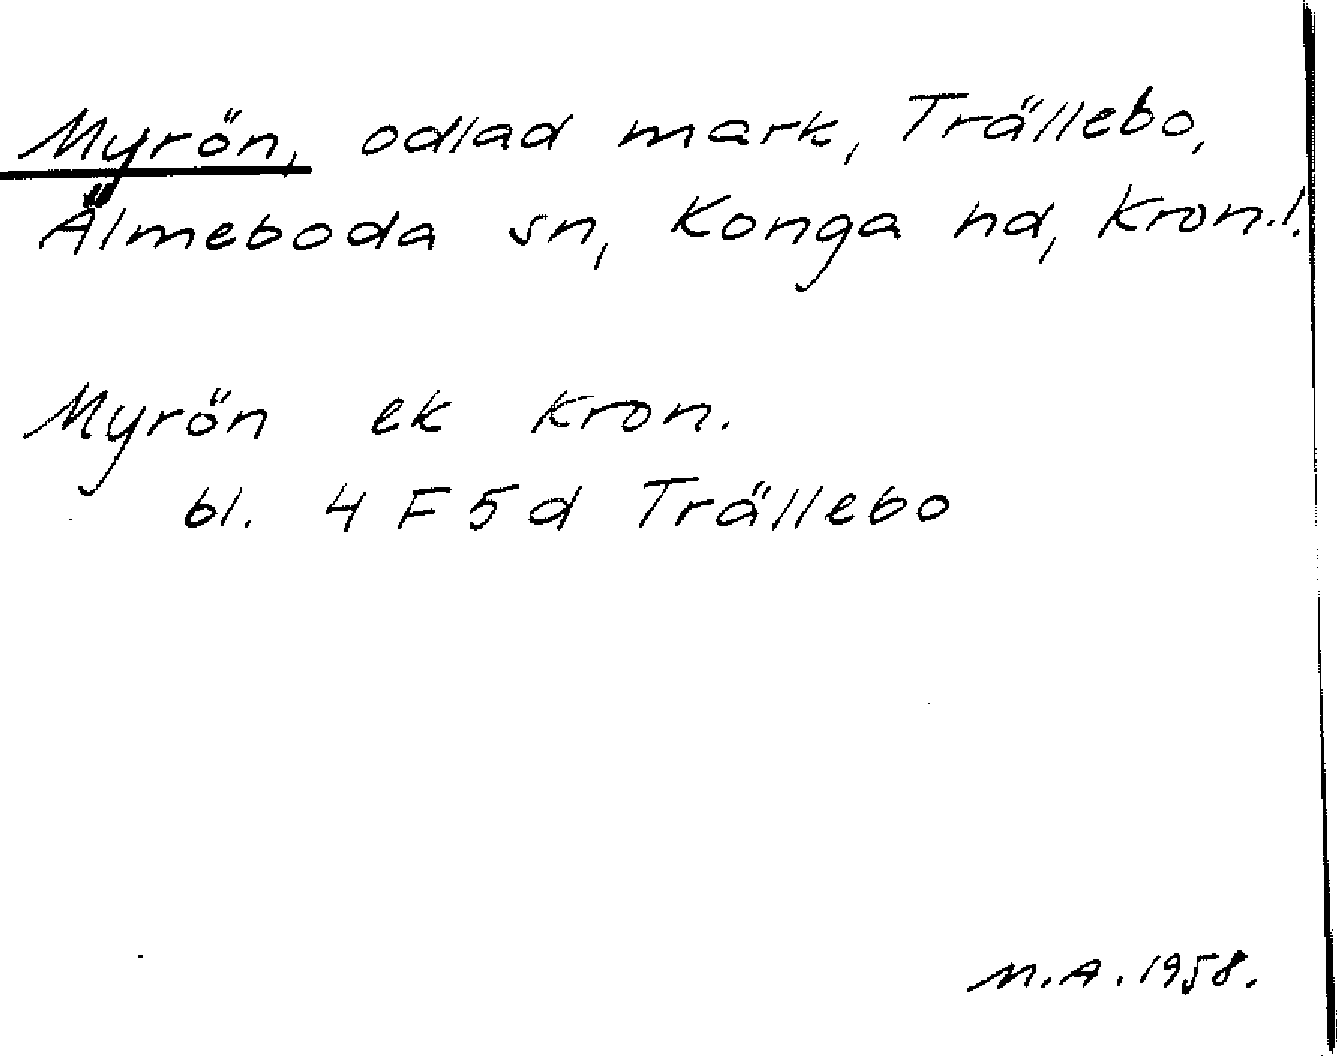 Myrön, odlad mark, Trällebo,
Älmeboda sn, Konga hd, Kron.l.
Myrön ek kron.
bl. 4 F 5 d Trällebo
M.A. 1958.